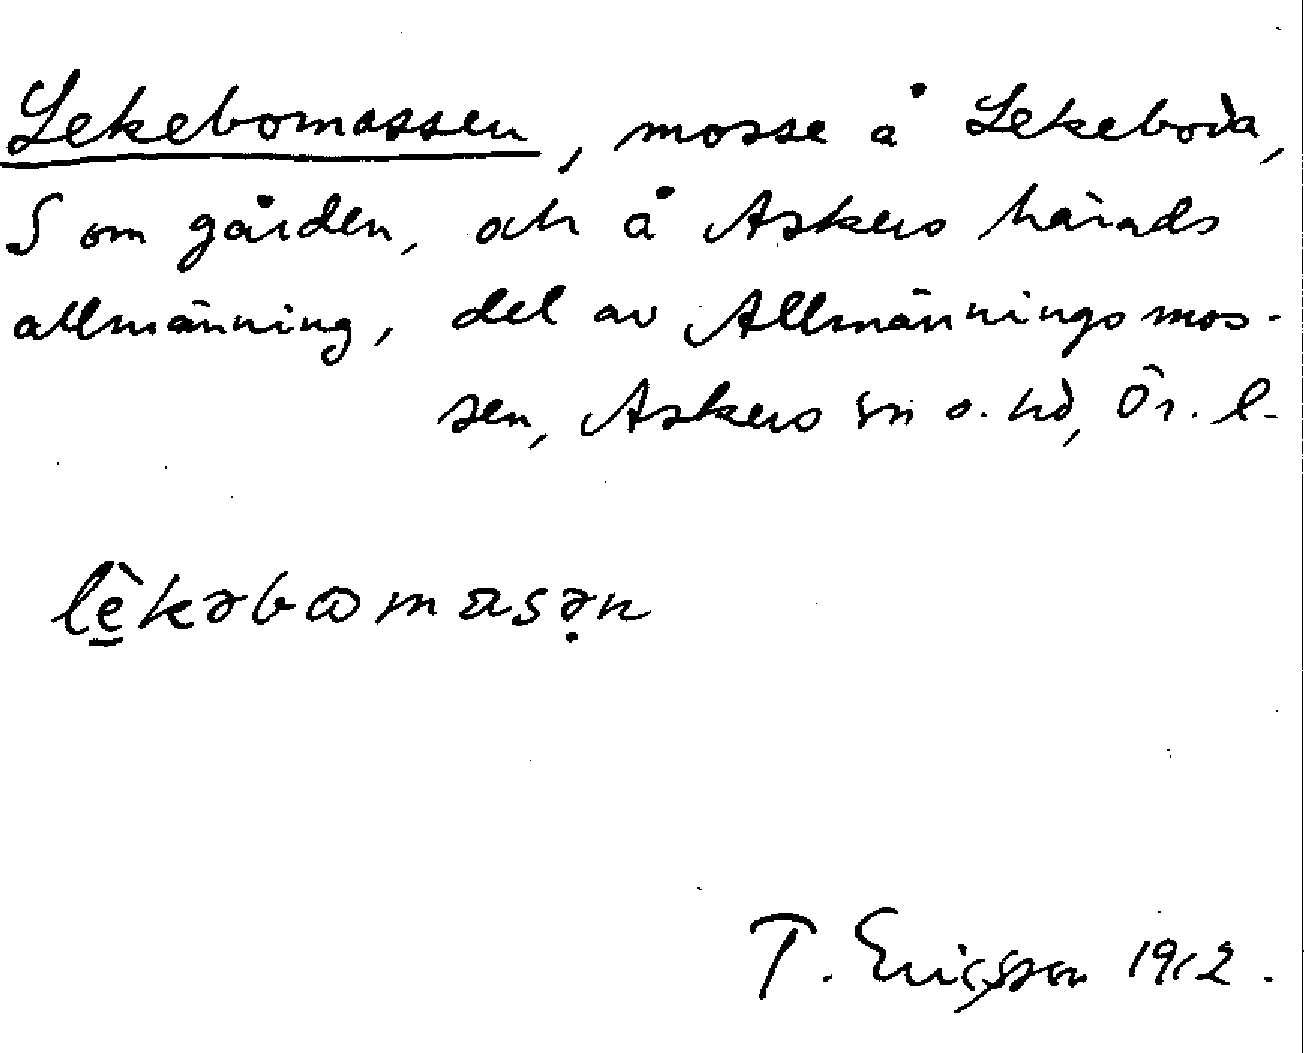 Lekebomassen, mosse å Lekeboda,
S om gården, och å Askers härads
allmänning, del av Allmänningsmos-
sen, Askers sn o. hd, Ör. l.
lèkəbωmasən
T. Ericsson 1912.